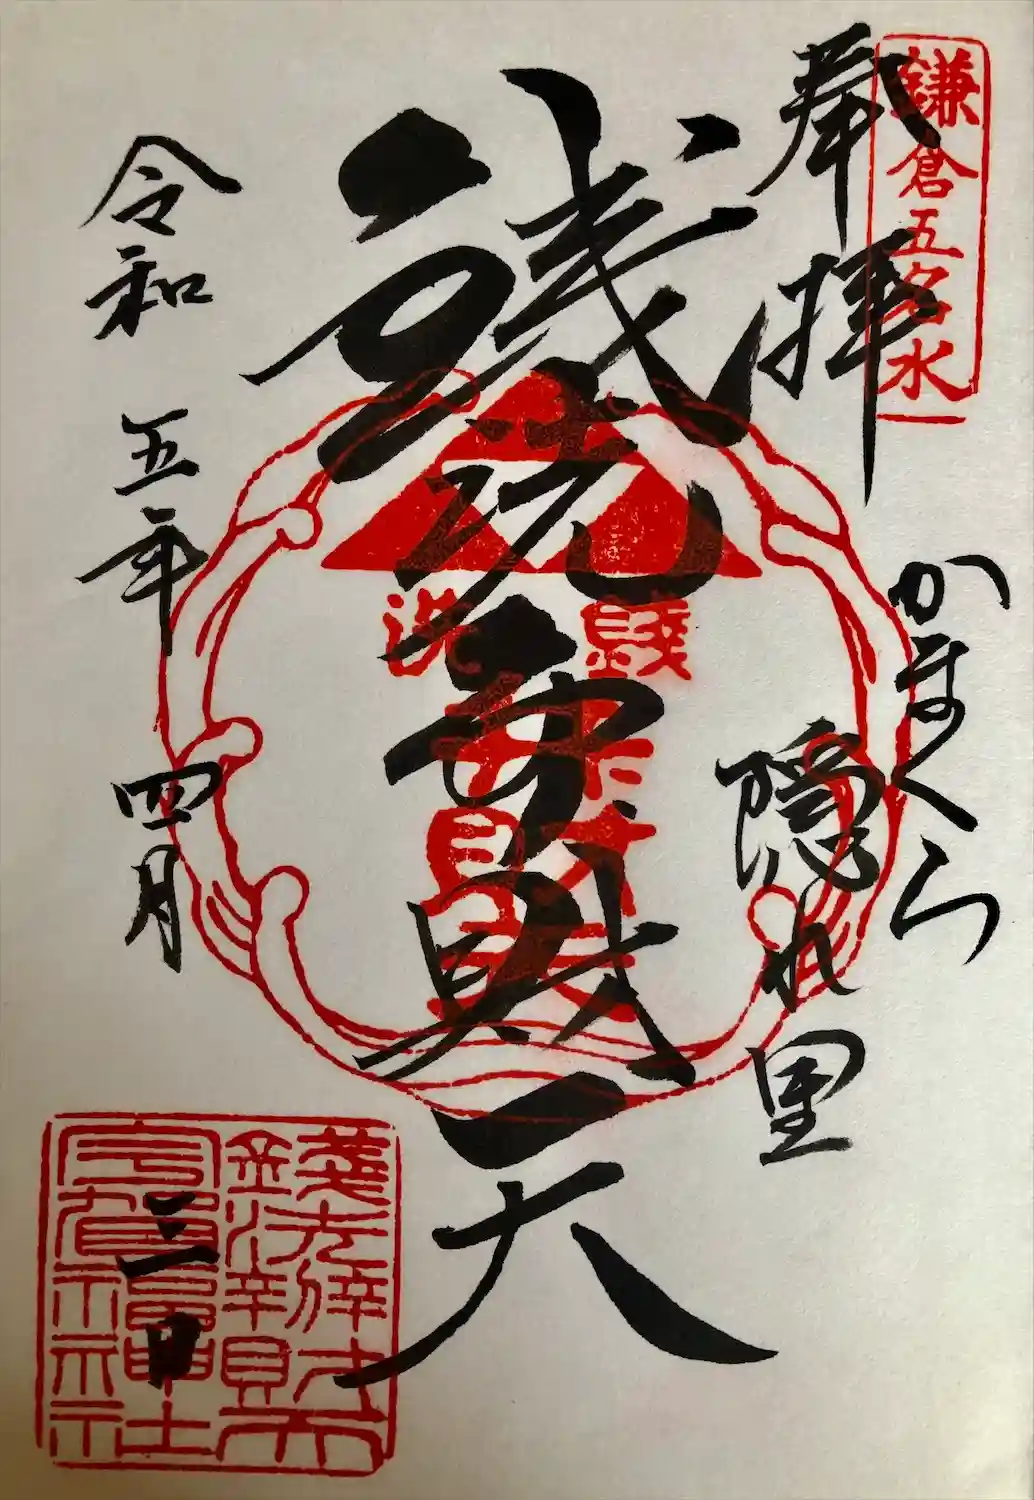 鎌倉五名水
奉拝
かまくら
隠れ里
銭洗弁財天
錢洗
辨財天
令和五年四月三日
錢洗辨財天
宇賀福神社